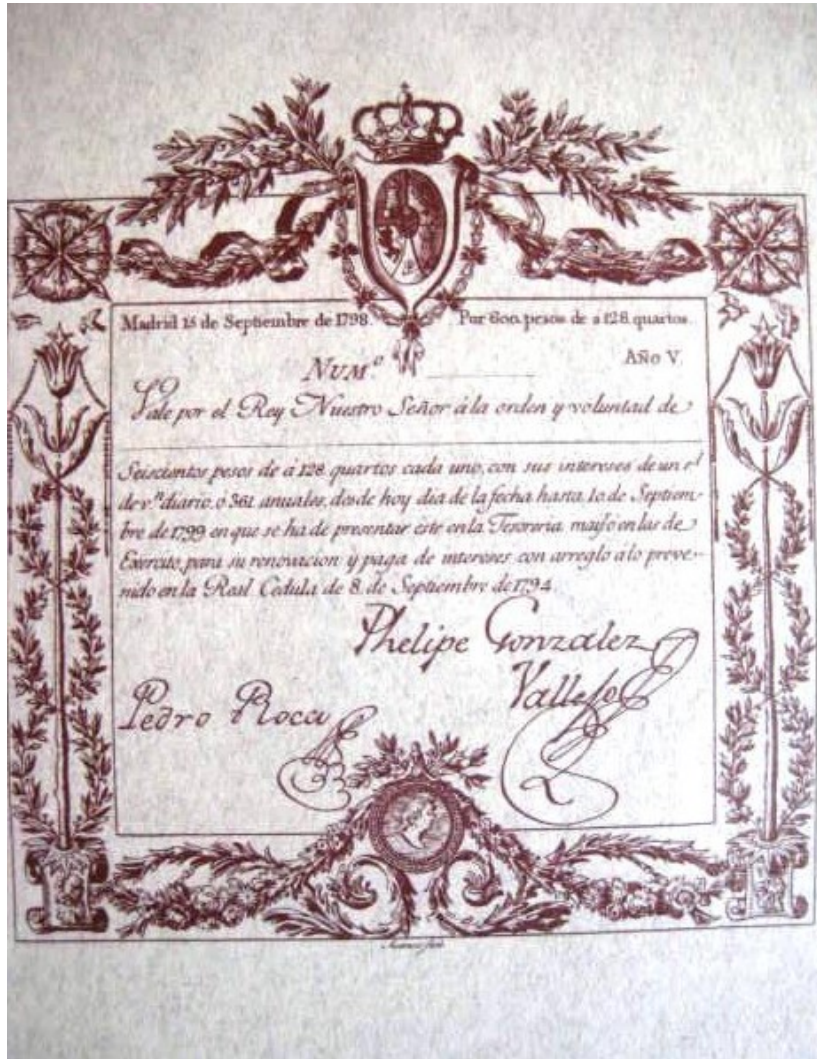 Madrid 15 de Septiembre de 1798. Por 600. pesos de a 128. quartos.
Año V.
NUM.º
Vale por el Rey Nuestro Señor á la orden y voluntad de
Seiscientos pesos de á 128. quartos cada uno, con sus intereses de un r.l
de v.n diario, ó 361. anuales, desde hoy dia de la fecha hasta 10. de Septiem-
bre de 1799 en que se ha de presentar este en la Tesorería may.r ó en las de
Exercito, para su renovacion y paga de intereses con arreglo á lo preve-
nido en la Real Cedula de 8. de Septiembre de 1794.
Phelipe Gonzalez
Vallejo
Pedro Roca